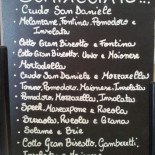 Crudo San Daniele
Melanzane, Fontina, Pomodoro e
Insalata
Cotto Gran Biscotto e Fontina
Cotto Gran Biscotto, Uovo e Maionese
Mortadella
Crudo San Daniele e Mozzarella
Tonno, Pomodoro, Maionese, Insalata
Pomodoro, Mozzarella, Insalata
Speck, Mascarpone e Rucola
Bresaola, Rucola e Grana
Salame e Brie
Cotto Gran Biscotto, Gamberetti,
Insalata